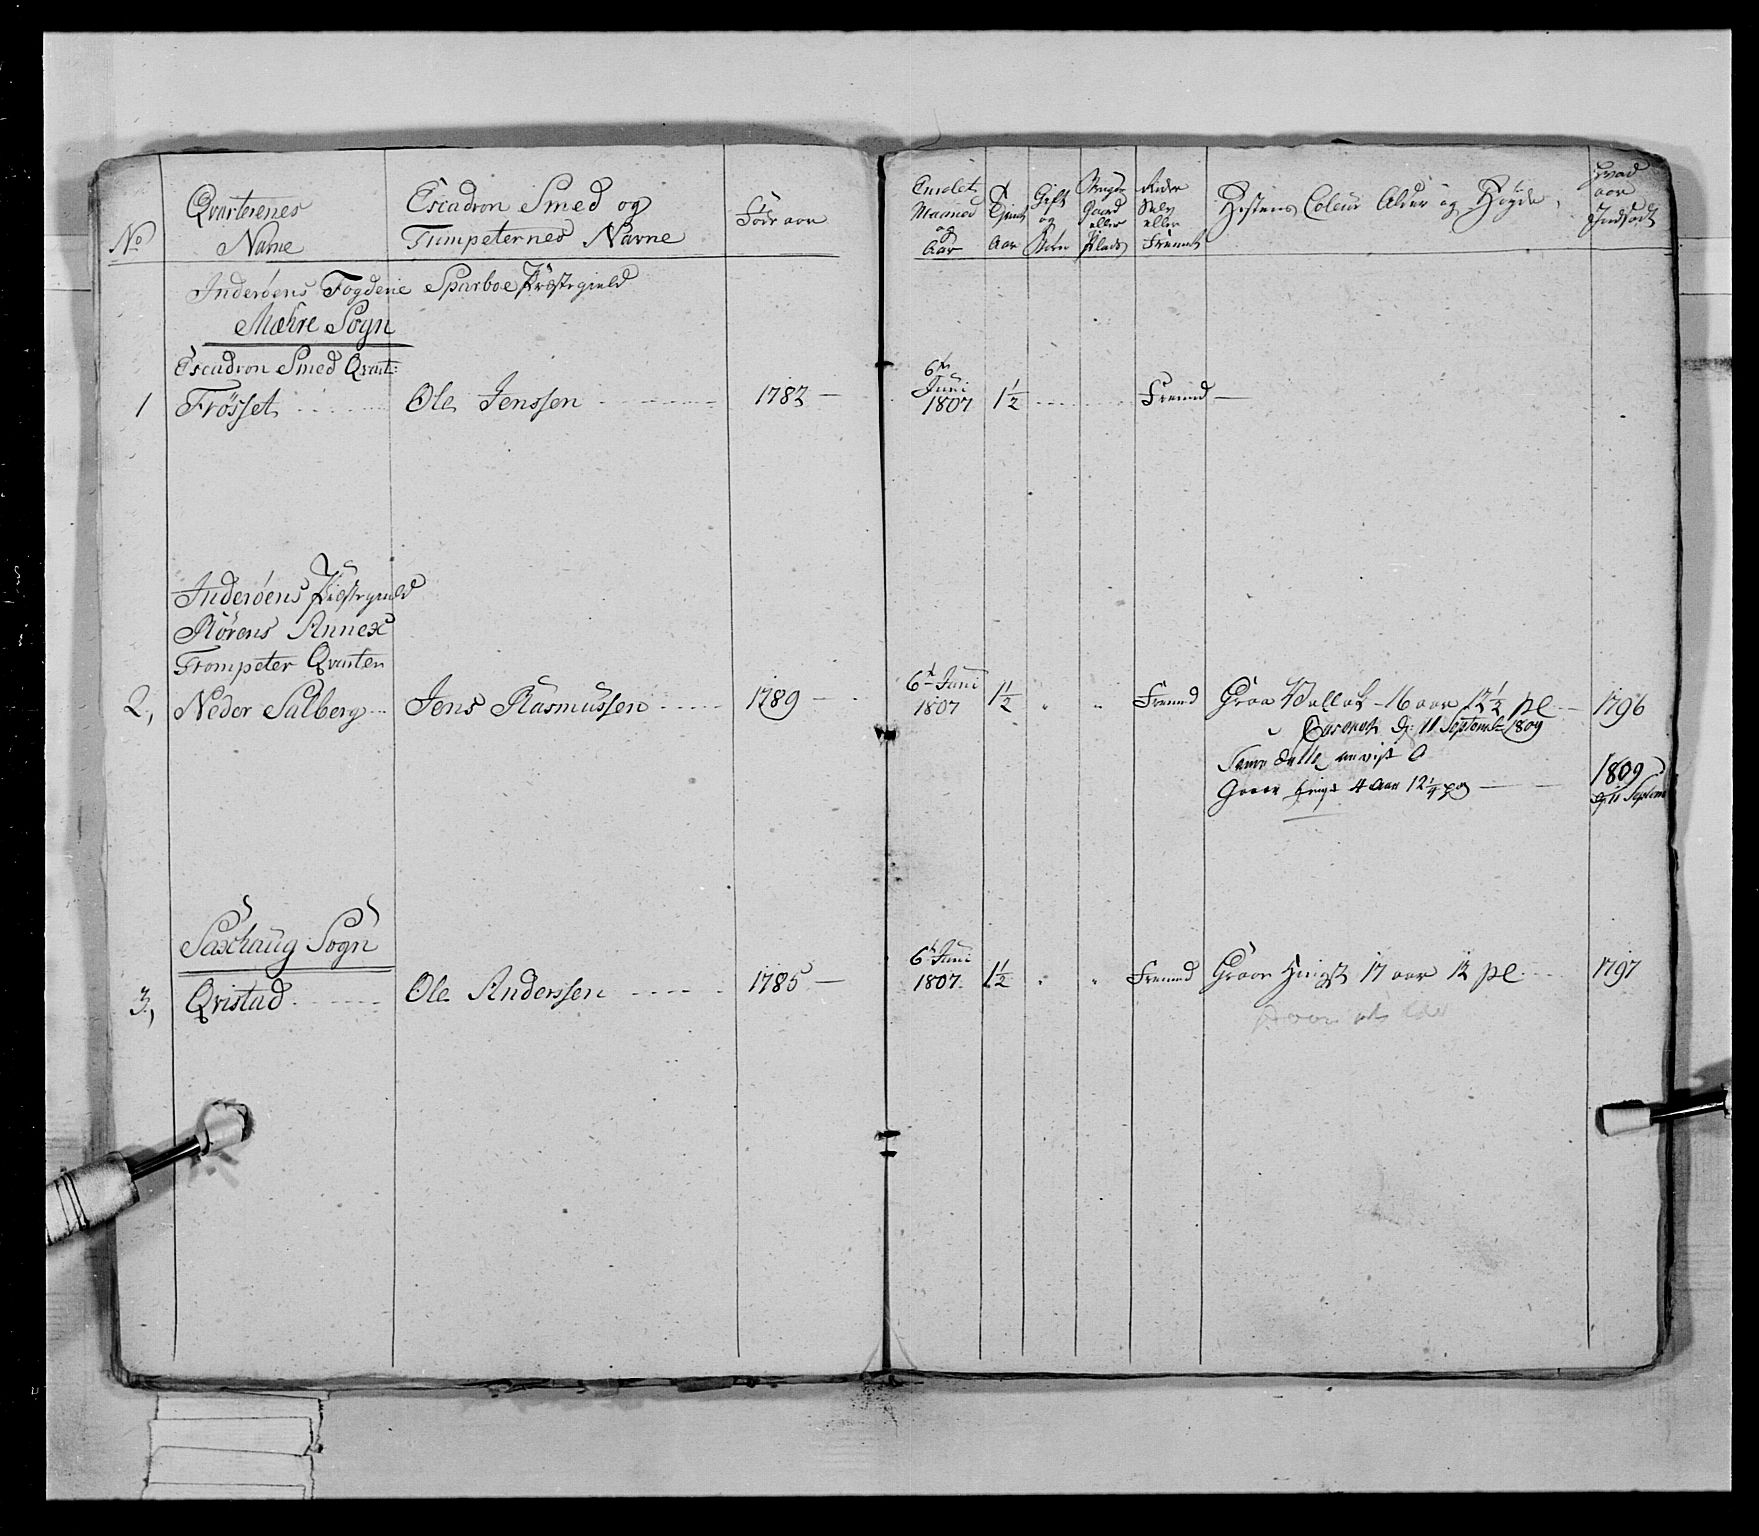 No
Qvarterenes
Navne
Escadron Smed og
Tumpeternes Navne
Føds aar
Maaned
og
Aar
Tjent
Aar
Gift
og
Børn
Gaard
eller
Plads
Rider
Selv
eller
Fremt
Hestens Coleur Alder og Høyde
Hvad
aar
Indsadt
Inderøens Fogderie Sparboe Præstegield
Mæhre Sogn
Escadron Smed Qvart:
1 Frösset Ole Jenssen 1782 6te Juni 1807 1½ Fremed
Inderøens Præstegield
Rörens Annex
Trompeter Qvarter
2, Neder Salberg Jens Rasmussen 1789 6t Juni 1807 1½ " " Fremed Graa Vallak 16 aar 12½ pl 1796
Casseret d: 11 Septemb 1809
anvist
4 Aar 12¼ 1809
d: 11 Septem
Saxhaug Sogn
3, Qvistad Ole Anderssen 1785 6t Juni 1807 1½ " " Fremed Graa Hingst 17 aar 12 pl 1797